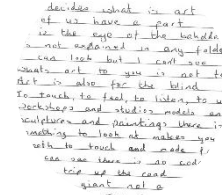 decides what is art
of us have a part
is the eye of the
is not explained in any
can look but I can't see
what's art to you is not
Art is also for the blind
To touch, to feel, to listen, to
workshops and studios models
sculptures and paintings there is
nothing to look at makes you
with to touch and made
can see there is no
trip up the road
giant not a